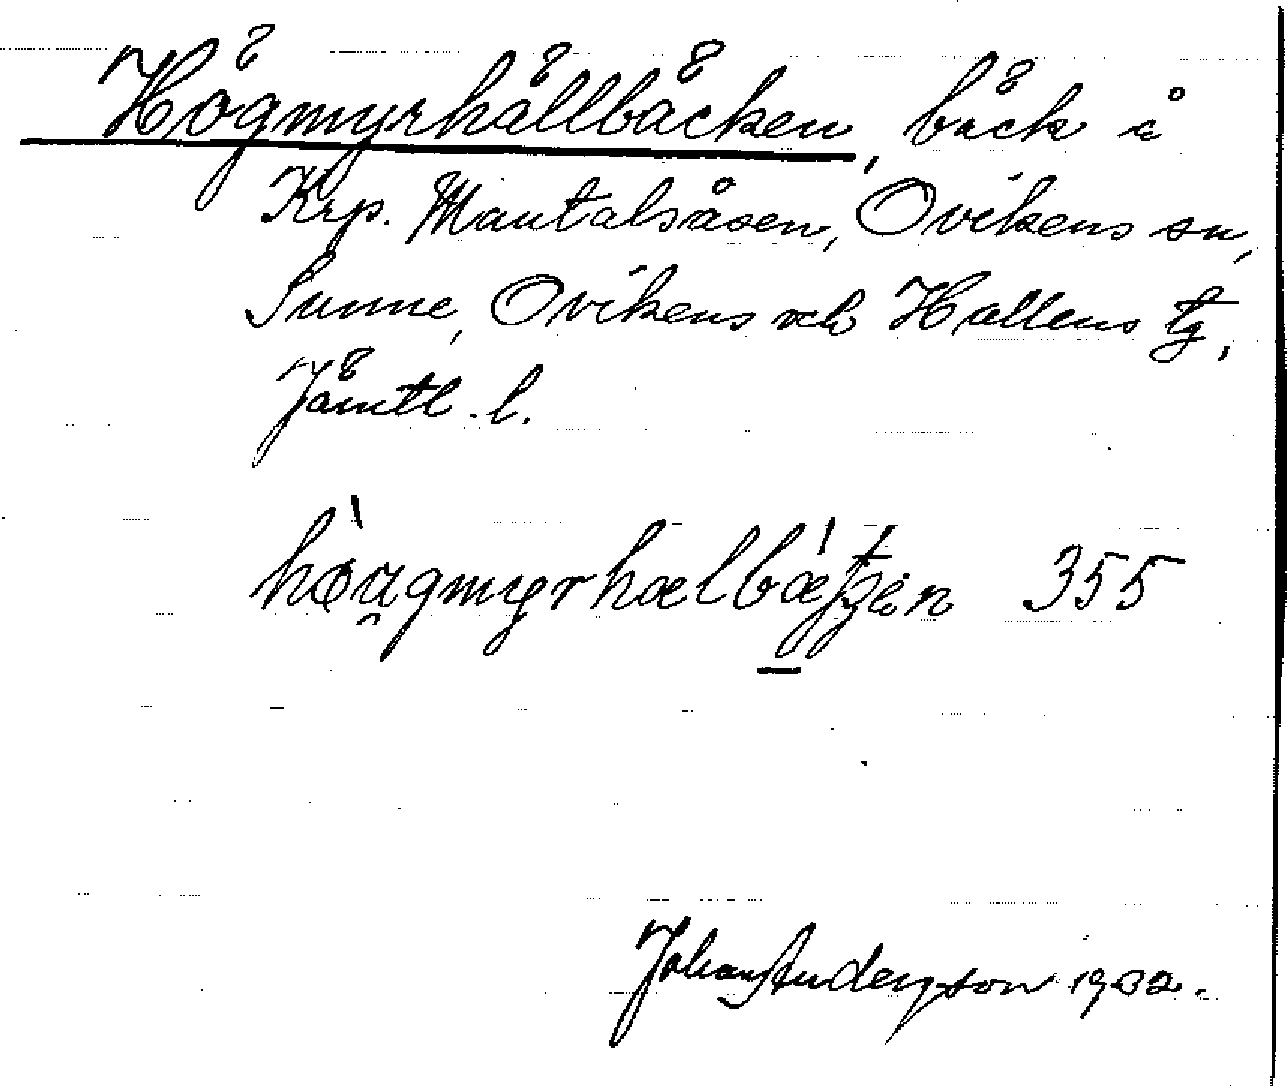 Högmyrhällbäcken, bäck å
Krp. Mantalsåsen, Ovikens sn,
Sunne, Ovikens och Hallens tg,
Jämtl. l.
355
Johan Anderson 1932.